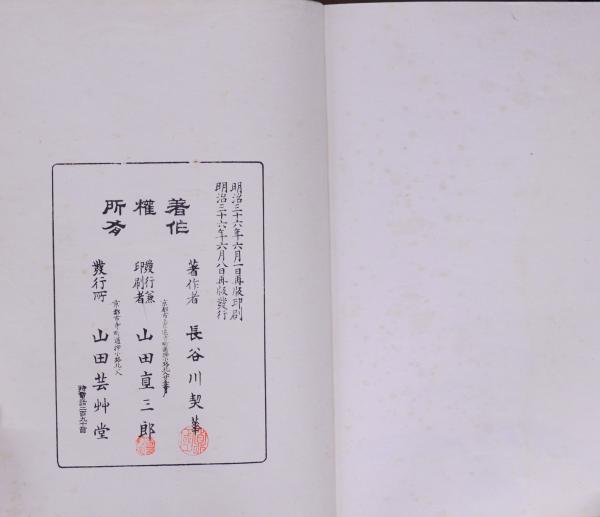 明治三十六年六月一日再版印刷
明治三十六年六月八日再版發行
著作
權
所有
著作者 長谷川契華
發行兼
印刷者 山田直三郎
發行所 山田芸艸堂
京都市寺町通押小路北入